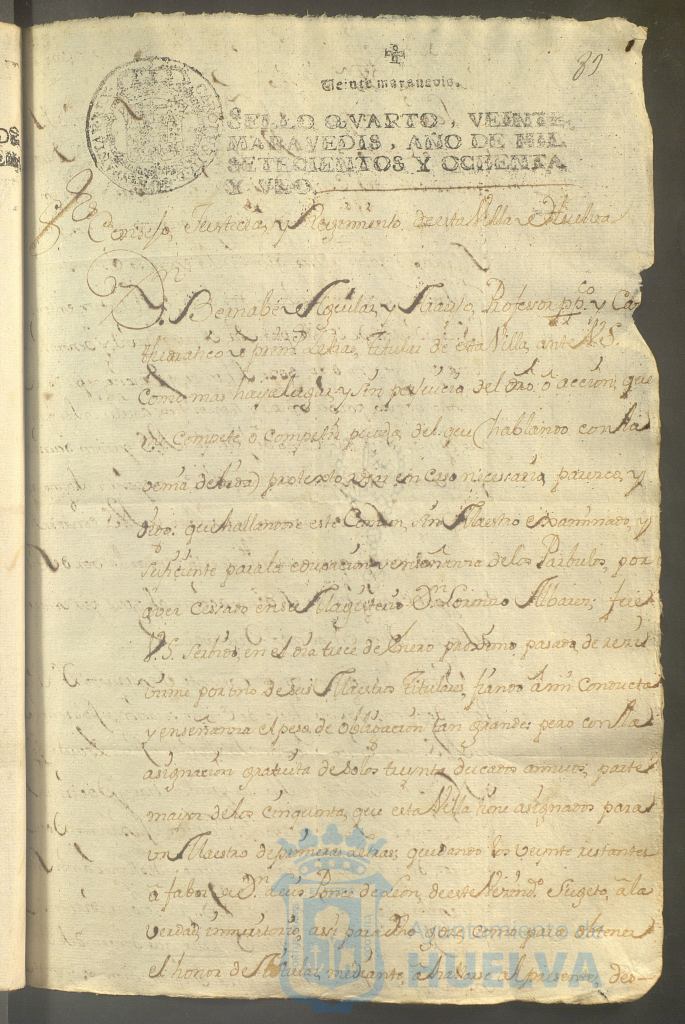 89
Veinte maravedis.
SELLO QVARTO, VEINTE
MARAVEDIS, AÑO DE MIL
SETECIENTOS Y OCHENTA
Y VNO.
Consejo, Justicia, y Regimiento de esta Villa de Huelva
Dn. Bernabe de Aguilar, y Profesor ppco. y Ca
thedratico de primas. Letras, titular de esta Villa, ante V.S.
como mas haya lugar y sin perjuicio del dro. ò accion, que
me compete, ò competir pueda, del que (hablando con la
venia debida) protexto usar en caso necesario, parezco, y
digo: que hallandose este Comun, sin Maestro examinado, y
suficiente para la educacion y enseñanza de los Parbulos, por
aver cesado en su Magisterio Dn. Lorenzo fue
V.S. servido, en el dia trece de Enero proximo pasado, de reci
birme por uno de sus Maestros Titulares, fiando à mi conducta
y enseñanza el peso de obligacion tan grande; pero con la
asignacion gratuita de solos treinta ducados annuos, parte
mayor de los cinquenta, que esta Villa tiene asignados para
un Maestro de primeras letras, quedando los veinte restantes
à fabor de Dn. Ponce de Leon, de este Vecindo. Sugeto, à la
verdad, inmeritorio, asi para dho goze, como para obtener
el honor de Titular, mediante, à hallarse al presente, des-
Ayuntamiento de
HUELVA